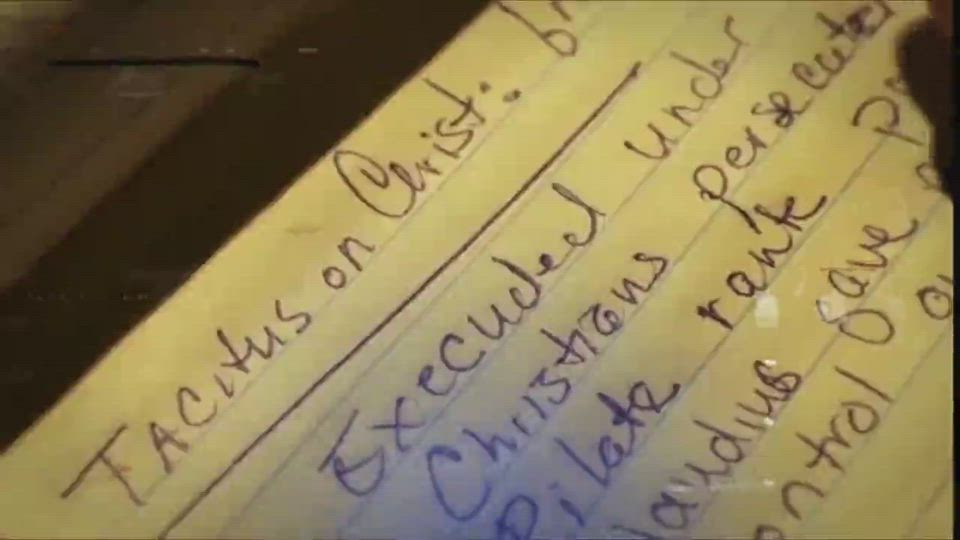 TACITUS on Christ: br
Executed under
Christians persecuted
Pilate rank
laudius gave
ontrol